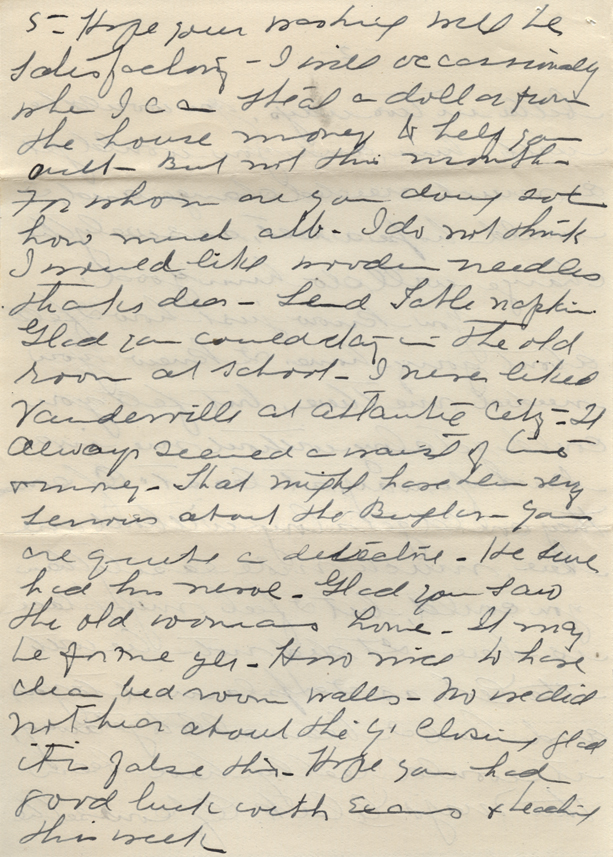 5- Hope your washing will be
satisfactory - I will occassionaly
when I can steal a dollar from
the house money & help you
out - But not this month -
For whom are you doing
how much alb - I do not think
I would like wooden needles
thanks dear - Send Table napkin.
Glad you could stay in the old
room at school - I never liked
Vanderville at Atlantic City - It
always seemed a waist of time
& money - That might have been very
serious about the Burglar - you
are quite a detective - He sure
had his nerve - Glad you saw
the old womans home - It may
be for me yet - How nice to have
clean bed room walls - No we did
not hear about the Y closing glad
it is false tho - Hope you had
good luck with Exams & teaching
this week